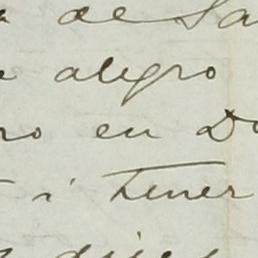 de Sa
alegro
ro en Do
i tener